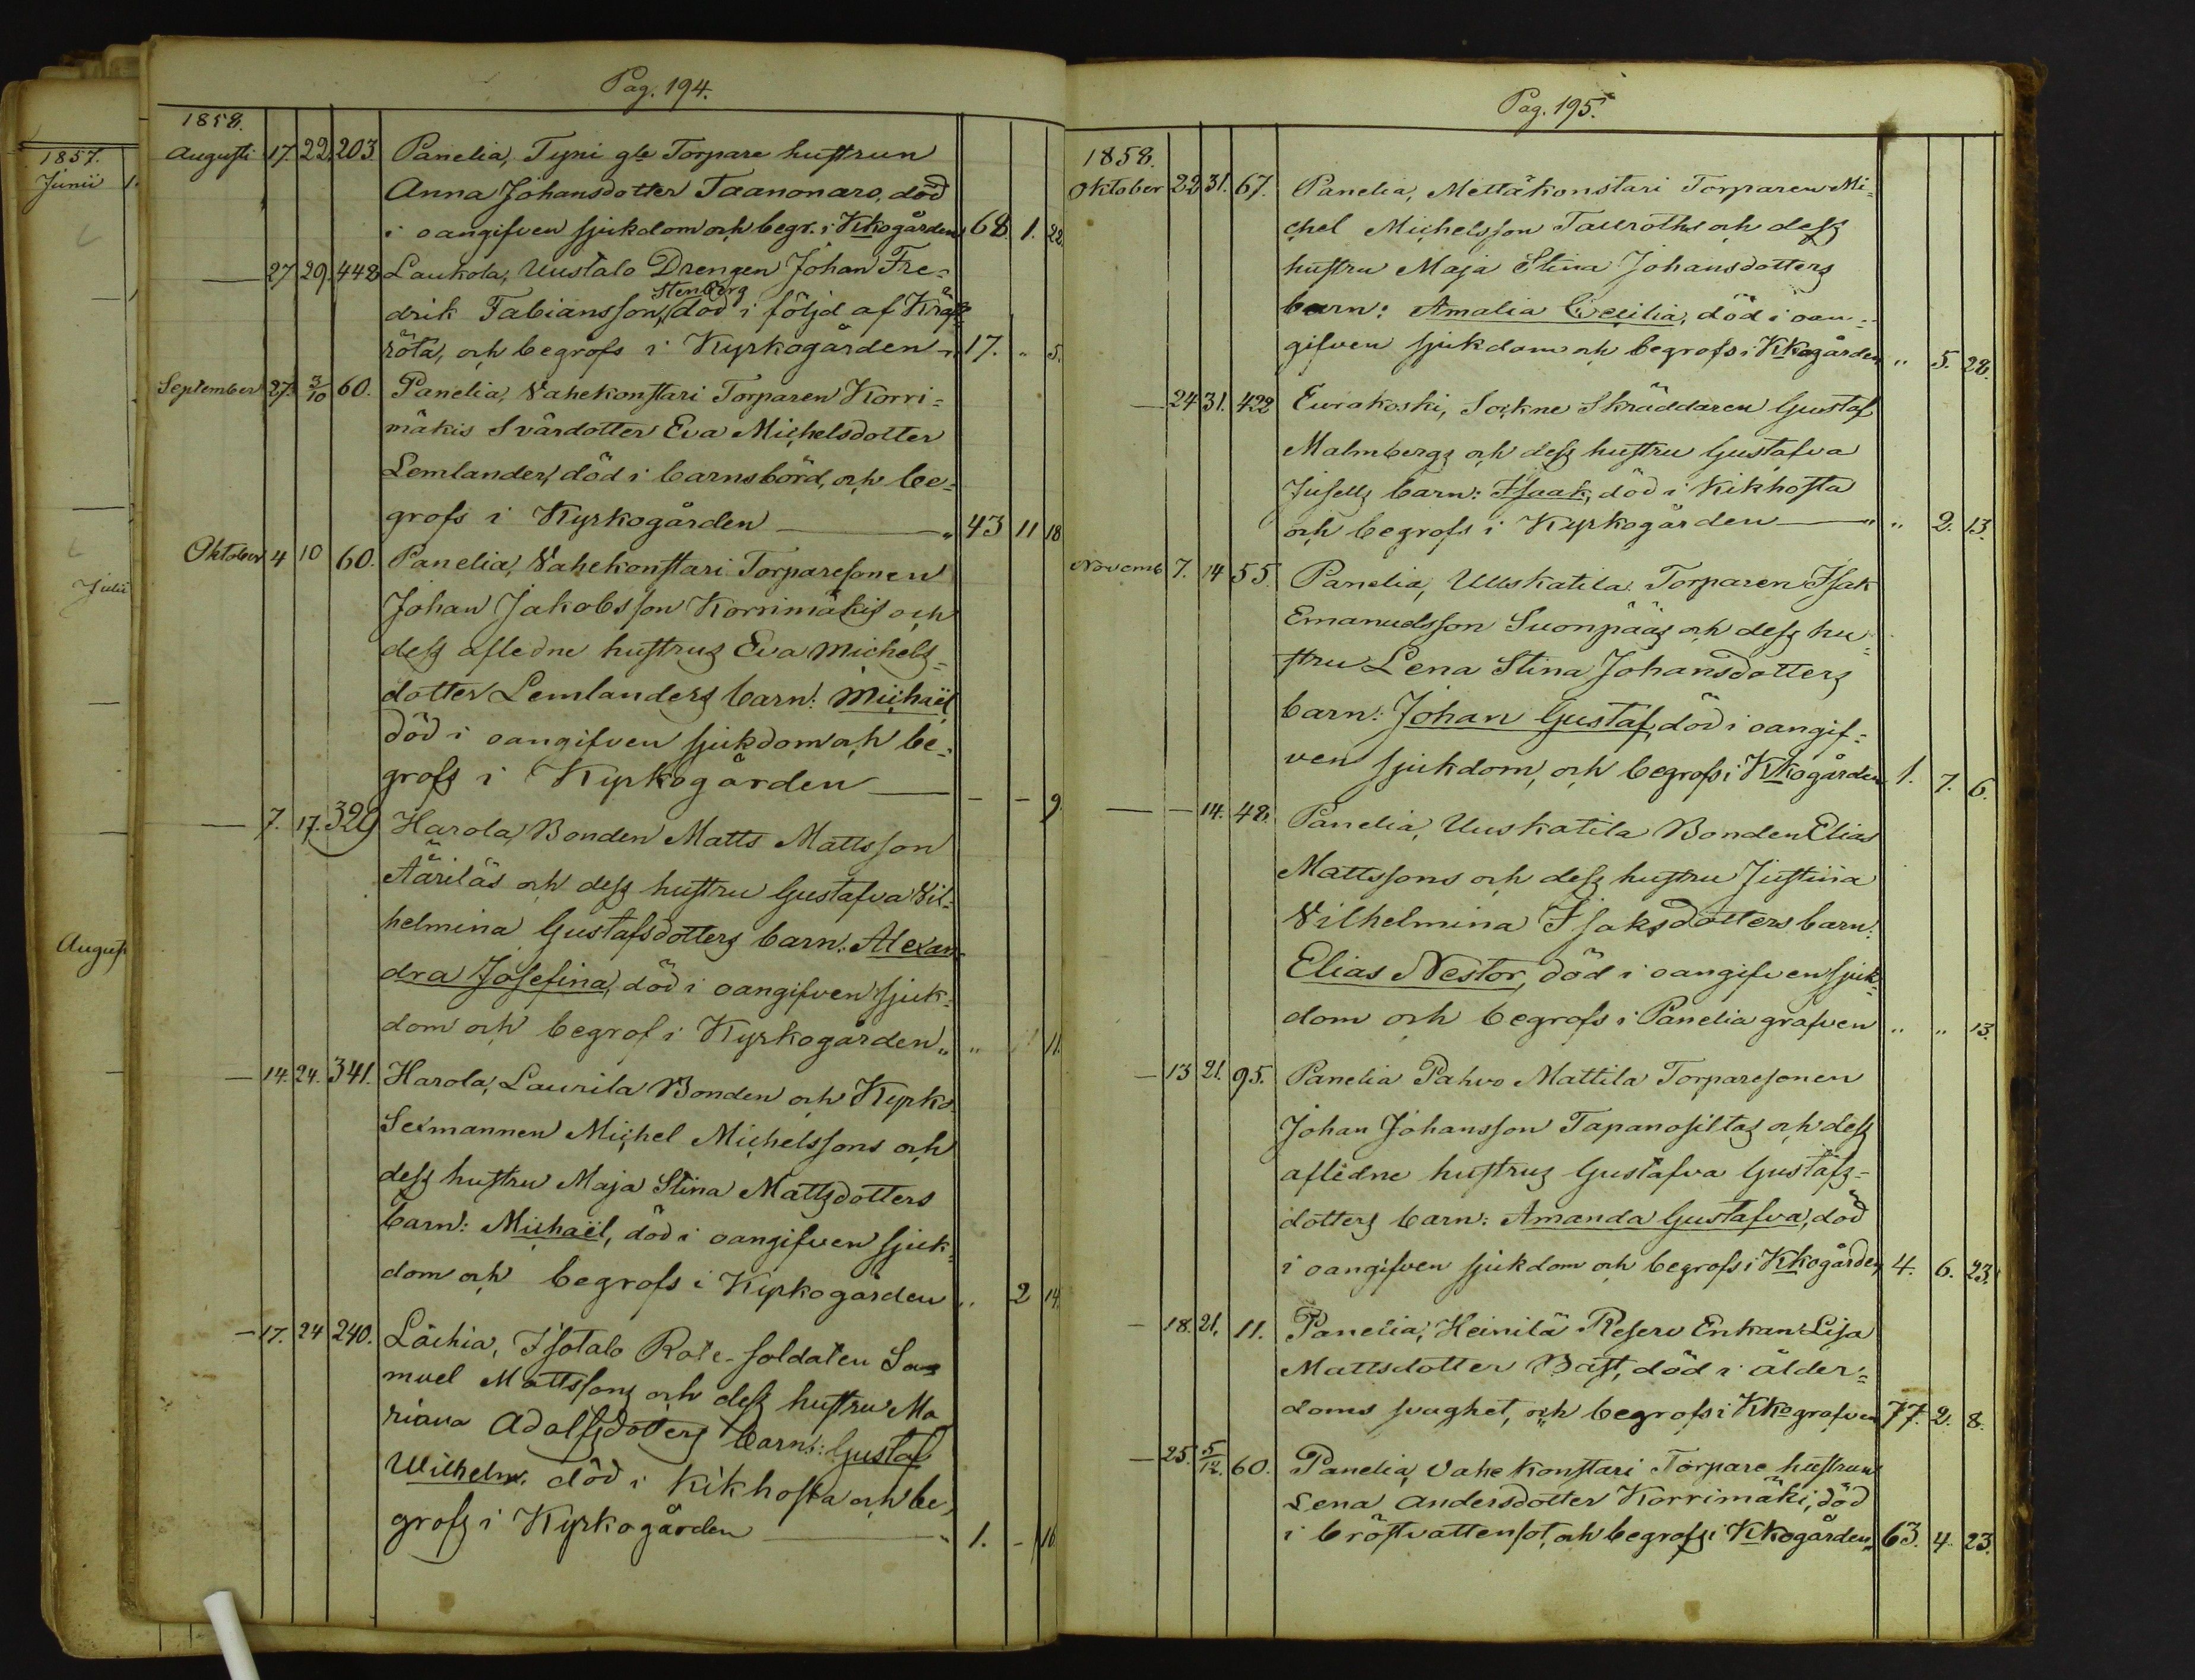 1857.
Junii
Julii
August
Pag. 194.
1858.
Augusti 17. 22. 203. Panelia, Tyni gle Torpare hustrun
Anna Johansdotter Taanonaro, död
i oangifven sjukdom och begr. i Kkogården 68. 1. 22.
— 27 29. 448 Laukola, Uustalo Drengen Johan Fre-
Stenberg
drik Fabiansson, död i följd af Kräft
röta, och begrofs i Kyrkogården 17. " 5.
September 27. 3/10 60. Panelia, Vahekonstari Torparen Korri-
mäkis Svärdotter Eva Michelsdotter
Lemlander, död i barnsbörd, och be-
grofs i Kyrkogården — " 43 11 18
Oktober 4 10 60. Panelia, Vahekonstari Torparesonen
Johan Jakobsson Korrimäkis och
dess afledne hustrus Eva Michels-
dotter Lemlanders barn: Michaël
död i oangifven sjukdom och be-
grofs i Kyrkogården — - - 9.
— 7. 17. 329 Harola, Bonden Matts Mattsson
Ääriläs och dess hustru Gustafva Vil-
helmina Gustafsdotters barn: Alexan
dra Josefina, död i oangifven sjuk-
dom och begrof i Kyrkogården " " 11.
— 14. 24. 341. Harola, Laurila Bonden och Kyrko
Sexmannen Michel Michelssons och
dess hustru Maja Stina Mattsdotters
barn: Michaël, död i oangifven sjuk-
dom och begrofs i Kyrkogården " 2 14.
— 17. 24 240. Läihiä, Isotalo Rote-soldaten Sa-
muel Mattssons och dess hustru Ma
riana Adolfsdotters barn: Gustaf
Wilhelm, död i kikhosta och be-
grofs i Kyrkogården — " 1. - 16
Pag. 195.
1858.
Oktober 22 31. 67. Panelia, Mettäkonstari Torparen Mi-
chel Michelsson Tauroths och dess
hustru Maja Stina Johansdotters
barn: Amalia Cecilia, död i oan-
gifven sjukdom och begrofs i Kkogården " 5. 28.
— 24 31. 422 Eurakoski, Sockne Skräddaren Gustaf
Malmbergs och dess hustru Gustafva
Juselis barn: Isaak, död i Kikhosta
och begrofs i Kyrkogården — " " 2. 13.
Novemb 7. 14 55. Panelia, Uuskatila Torparen Isak
Emanuelsson Suonpääs och dess hu-
stru Lena Stina Johansdotters
barn: Johan Gustaf, död i oangif-
ven sjukdom, och begrofs i Kkogården 1. 7. 6.
— — 14. 48. Panelia, Uuskatila Bonden Elias
Mattssons och dess hustru Justina
Vilhelmina Isaksdotters barn:
Elias Nestor, död i oangifven sjuk-
dom och begrofs i Panelia grafven " " 13.
— 13 21. 95. Panelia Pahvo Mattila Torparesonen
Johan Johansson Tapanosiltas och dess
afledne hustrus Gustafva Gustafs-
dotters barn: Amanda Gustafva, död
i oangifven sjukdom och begrofs i Kkogården 4. 6. 23.
— 18. 21. 11. Panelia, Heinilä Reserv Enkan Lisa
Mattsdotter Bast, död i ålder-
doms svaghet, och begrofs i Kkografven 77. 2. 8.
— 25. 5/12. 60. Panelia, Vahe konstari Torpare hustrun
Lena Andersdotter Korrimäki, död
i bröstvattensot, och begrofs i Kkogården, 63. 4. 23.